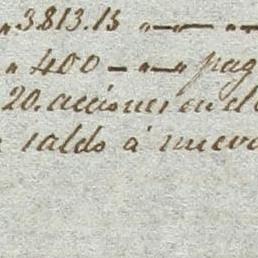 „3813.15 „—„ — „
„ 400 — „—„ pag
20. acciones en el
saldo á nuevo